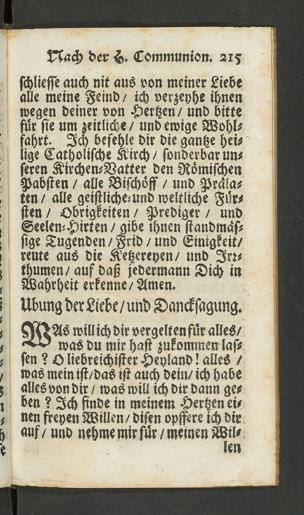 Nach der H. Communion. 215
schliesse auch nit aus von meiner Liebe
alle meine Feind / ich verzeyhe ihnen
wegen deiner von Hertzen / und bitte
für sie um zeitliche / und ewige Wohl-
fahrt. Ich befehle dir die gantze hei-
lige Catholische Kirch / sonderbar un-
seren Kirchen-Vatter den Römischen
Pabsten / alle Bischöff / und Präla-
ten / alle geistliche- und weltliche Für-
sten / Obrigkeiten / Prediger / und
Seelen-Hirten / gibe ihnen standmäs-
sige Tugenden / Frid / und Einigkeit /
reute aus die Ketzereyen / und Irr-
thumen / auf daß jedermann Dich in
Wahrheit erkenne / Amen.
Ubung der Liebe / und Dancksagung.
WAs will ich dir vergelten für alles /
was du mir hast zukommen las-
sen ? O liebreichister Heyland ! alles /
was mein ist / das ist auch dein / ich habe
alles von dir / was will ich dir dann ge-
ben ? Ich finde in meinem Hertzen ei-
nen freyen Willen / disen opffere ich dir
auf / und nehme mir für / meinen Wil-
len